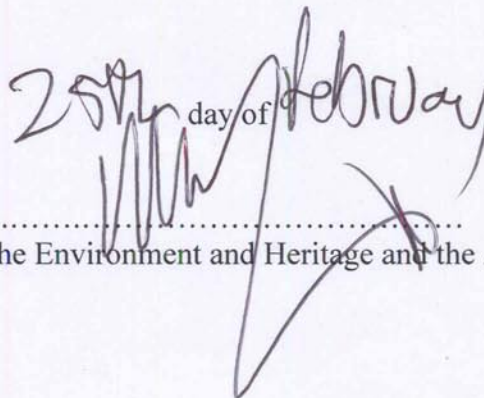 25th day of February
he Environment and Heritage and the